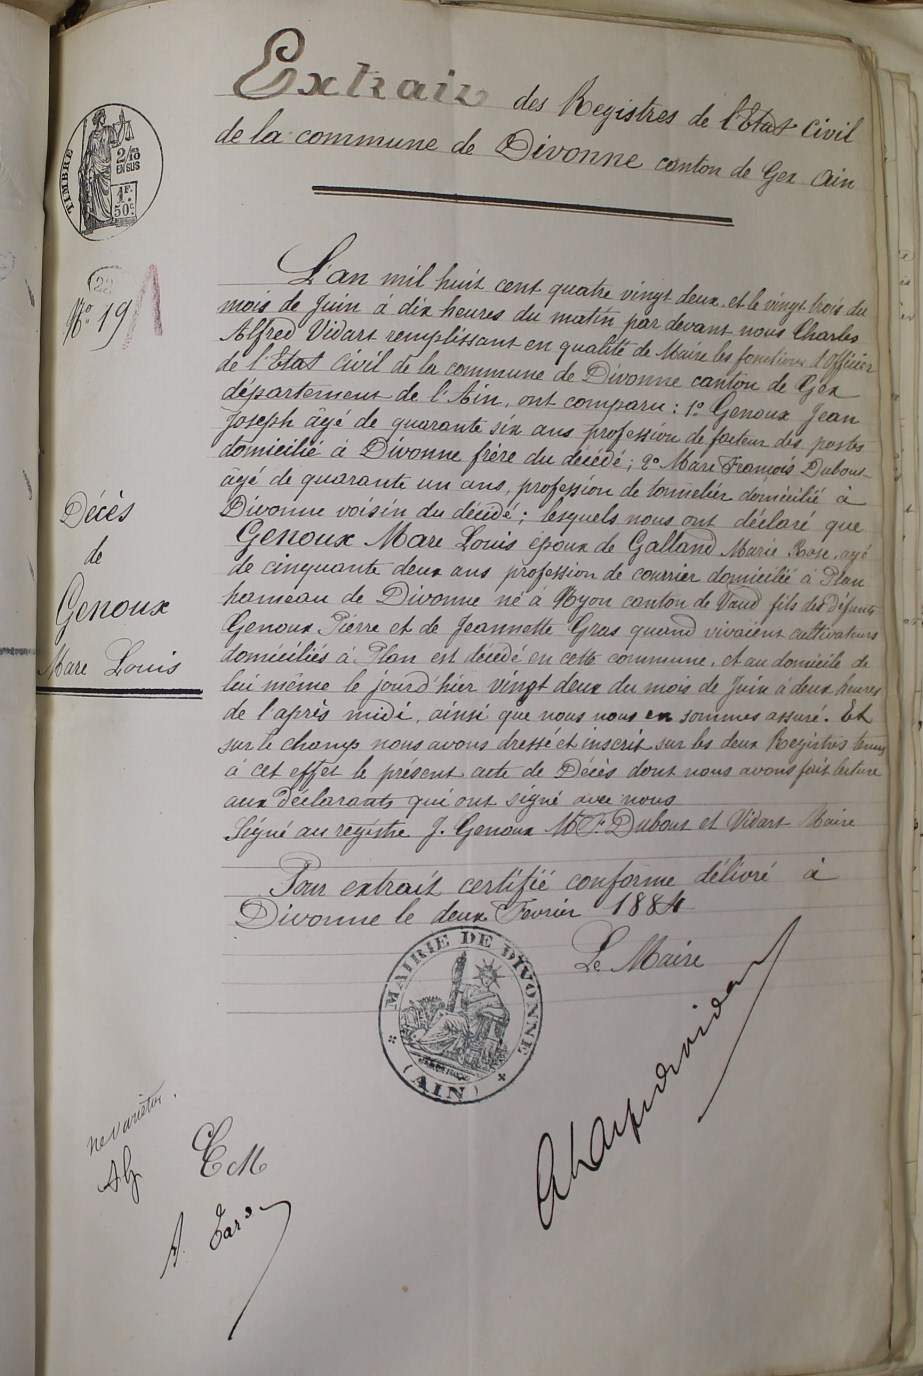 Extrait des Registres de l'Etat Civil
de la commune de Divonne canton de Gex Ain
TIMBRE
2/10
EN SUS
1F.
50c.
22
No 19
L'an mil huit cent quatre vingt deux et le vingt trois du
mois de Juin à dix heures du matin par devant nous Charles
Alfred Vidart remplissant en qualité de Maire les fonctions d'officier
de l'Etat Civil de la commune de Divonne canton de Gex
département de l'Ain, ont comparu : 1o Genoux Jean
Joseph âgé de quarante six ans profession de facteur des postes
domicilié à Divonne frère du décédé ; 2o Marc François Dubout
âgé de quarante un ans, profession de tonnelier domicilié à
Divonne voisin du décédé ; lesquels nous ont déclaré que
Genoux Marc Louis époux de Galland Marie Rose, agé
de cinquante deux ans profession de courrier domicilié à Plan
hameau de Divonne né à Nyon canton de Vaud fils des défunts
Genoux Pierre et de Jeannette Gras quand vivaient cultivateurs
domiciliés à Plan est décédé en cette commune, et au domicile de
lui même le jourd'hier vingt deux du mois de Juin à deux heures
de l'après midi, ainsi que nous nous en sommes assuré. Et
sur le champ nous avons dressé et inscrit sur les deux Registres tenus
à cet effet le présent acte de Décès dont nous avons fait lecture
aux déclarants qui ont signé avec nous
Signé au registre J. Genoux M F. Dubout et Vidart Maire
Décès
de
Genoux
Marc Louis
Pour extrait certifié conforme délivré à
Divonne le deux Fevrier 1884
Le Maire
MAIRIE DE DIVONNE
(AIN)
ne varietur.